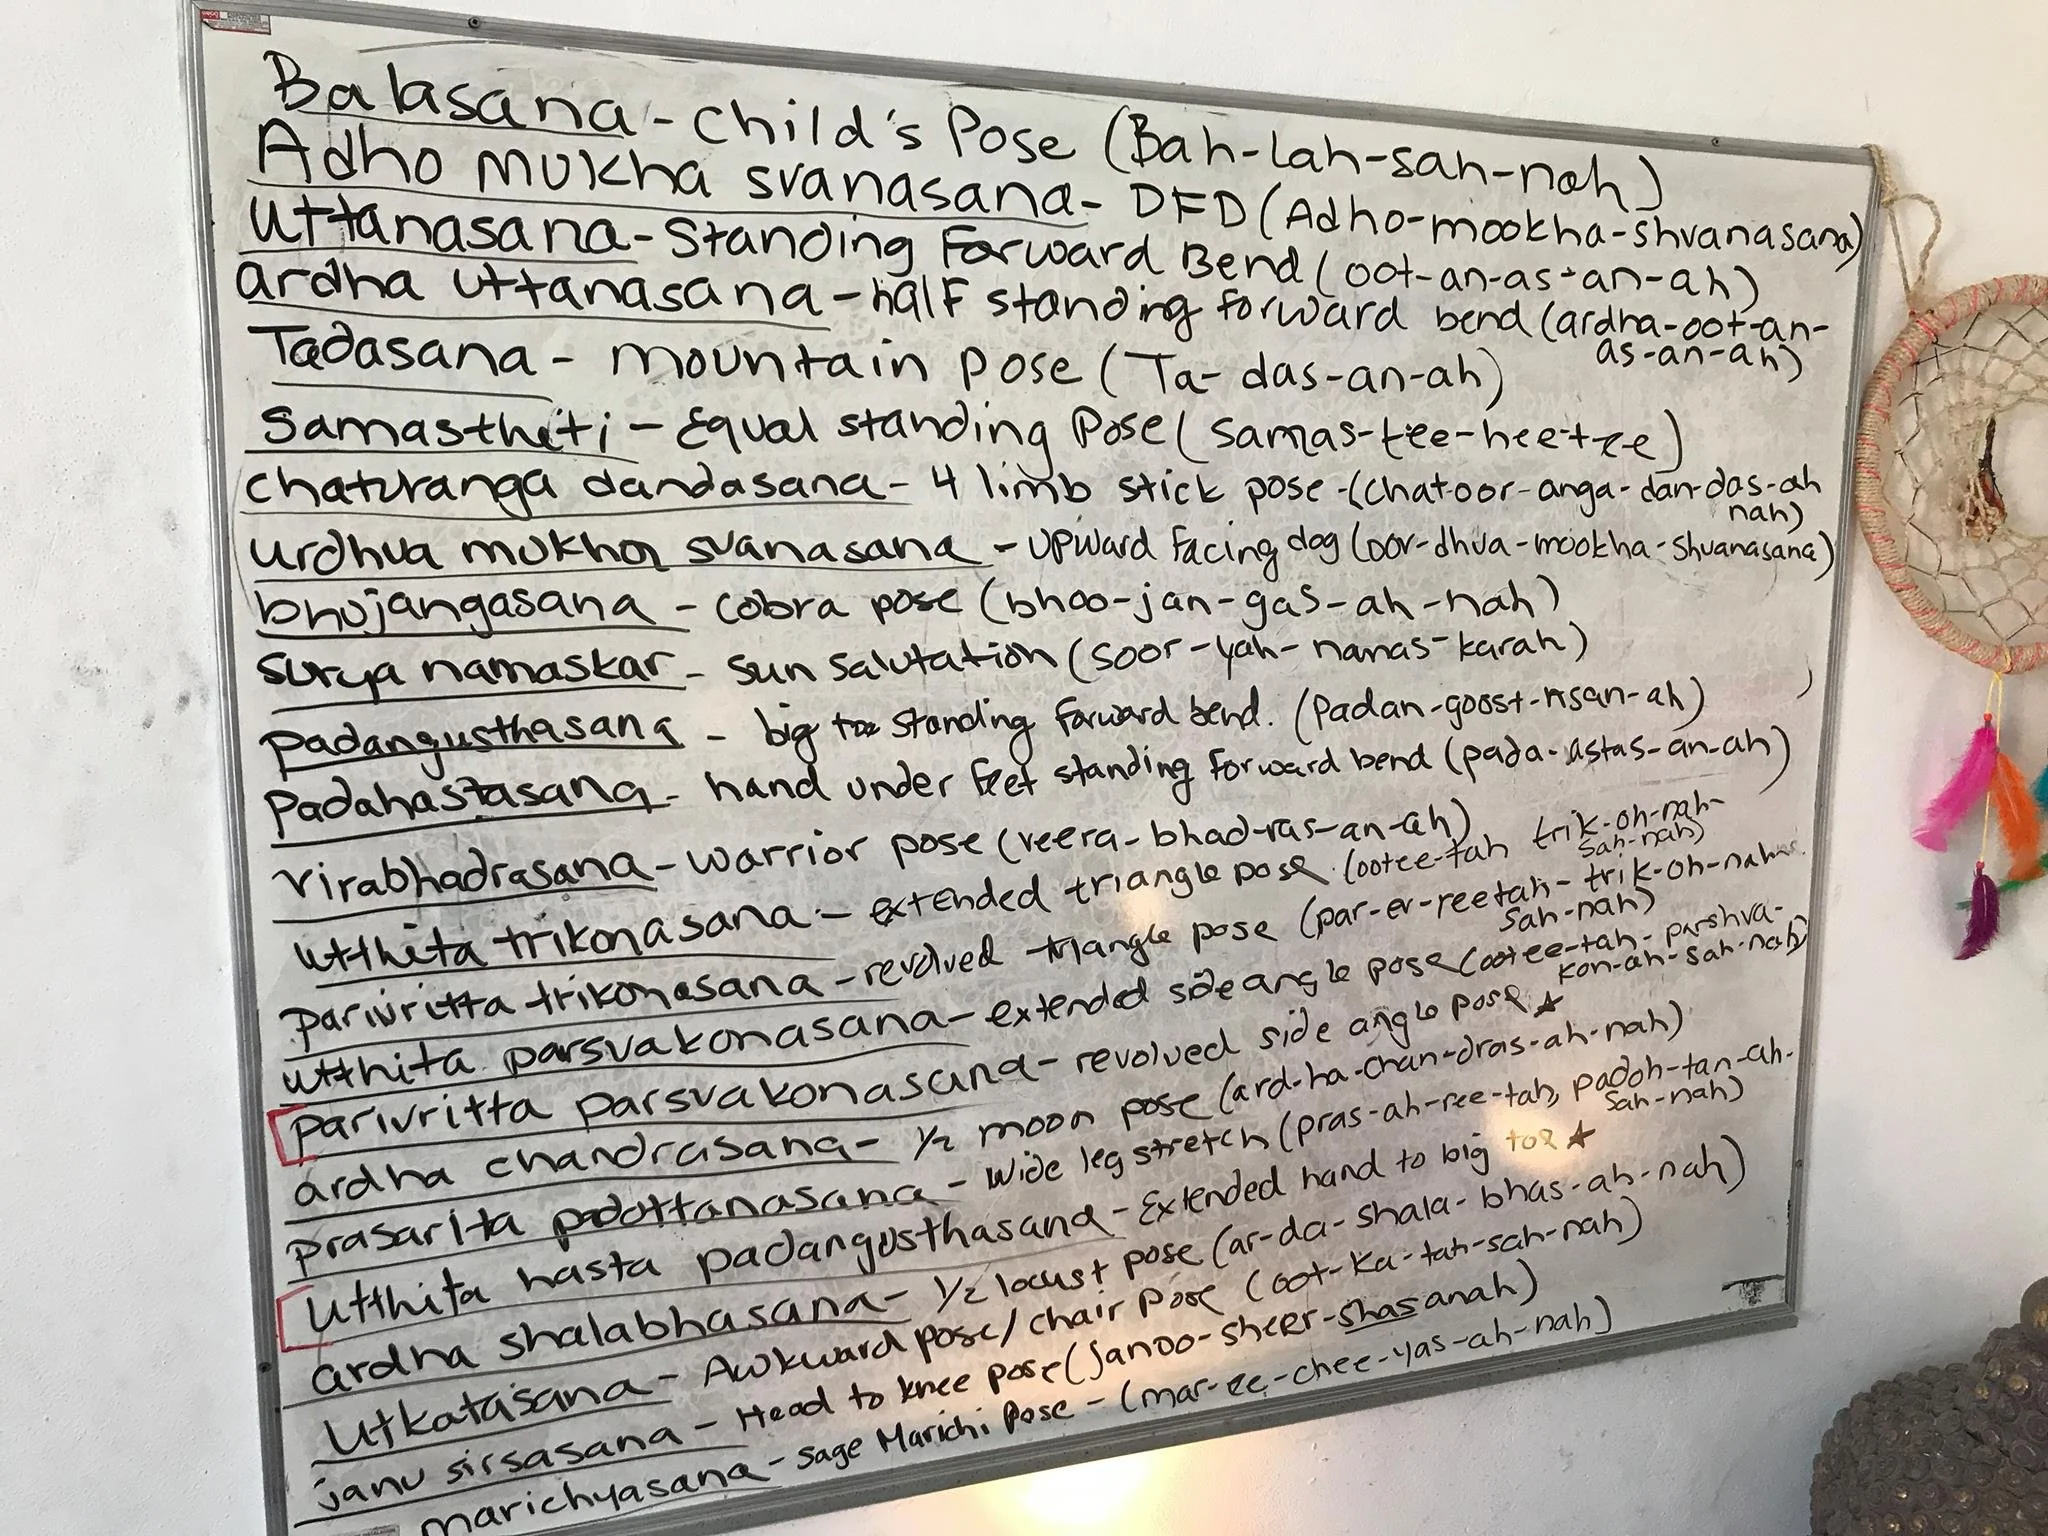 Balasana - Child's Pose (Bah-lah-sah-nah)
Adho mukha svanasana - DFD (Adho-mookha-shvanasana)
uttanasana - Standing Forward Bend (oot-an-as-an-ah)
ardha uttanasana - half standing forward bend (ardha-oot-an-
as-an-ah)
Tadasana - mountain pose (Ta-das-an-ah)
Samasthiti - Equal standing Pose (samas-tee-hee-tee)
chaturanga dandasana - 4 limb stick pose - (chatoor-anga-dan-das-ah
nah)
urdhva mukha svanasana - upward facing dog (oor-dhva-mookha-shvanasana)
bhujangasana - cobra pose (bhoo-jan-gas-ah-nah)
surya namaskar - sun salutation (soor-yah-namas-karah)
padangusthasana - big toe standing forward bend. (Padan-goost-hsan-ah)
padahastasana - hand under feet standing forward bend (pada-astas-an-ah)
virabhadrasana - warrior pose (veera-bhad-ras-an-ah)
utthita trikonasana - extended triangle pose (ootee-tah trik-oh-nah-
sah-nah)
parivritta trikonasana - revolved triangle pose (par-ev-reetah-trik-oh-nah
sah-nah)
utthita parsvakonasana - extended side angle pose (ootee-tah-parshva-
kon-ah-sah-nah)
parivritta parsvakonasana - revolved side angle pose ★
ardha chandrasana - 1/2 moon pose (ard-ha-chan-dras-ah-nah)
prasarita padottanasana - wide leg stretch (pras-ah-ree-tah, padoh-tan-ah-
sah-nah)
utthita hasta padangusthasana - Extended hand to big toe ★
ardha shalabhasana - 1/2 locust pose (ar-da-shala-bhas-ah-nah)
utkatasana - Awkward pose/chair pose (oot-ka-tah-sah-nah)
janu sirsasana - Head to knee pose (janoo-sheer-shasanah)
marichyasana - sage Marichi pose - (mar-ee-chee-yas-ah-nah)